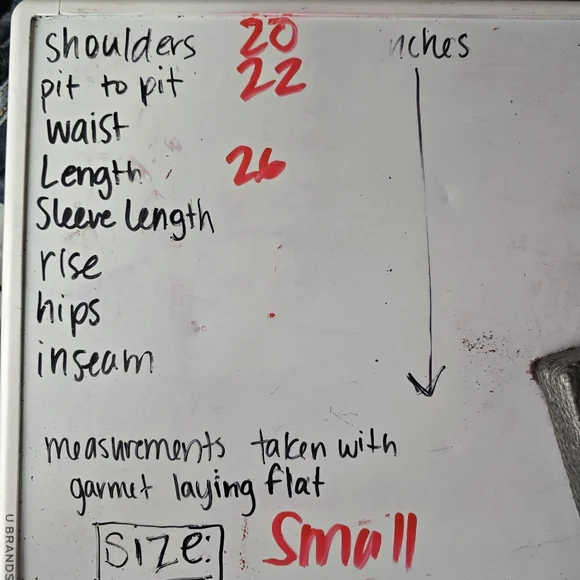 shoulders 20 nches
pit to pit 22
waist
Length 26
Sleeve length
rise
hips
inseam
measurements taken with
garmet laying flat
SIZE: Small
U BRANDS